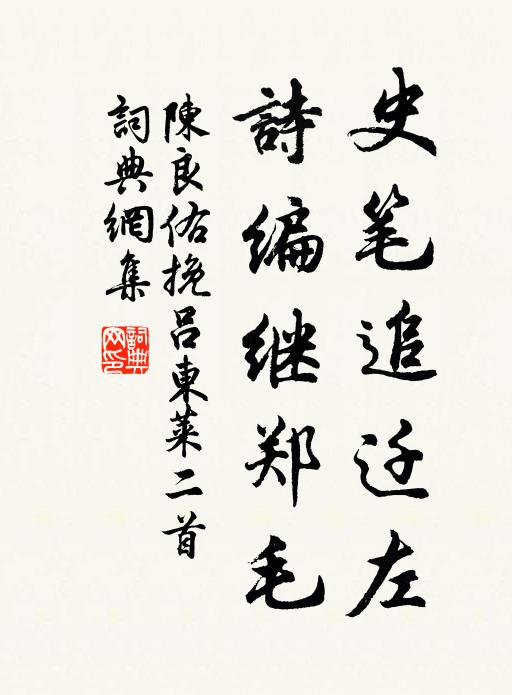 史笔追迁左
詩编继郑毛
陳良佑挽吕東萊二首
詞典網集
詞典網印